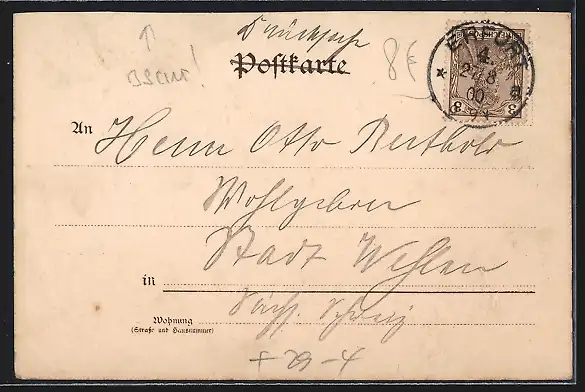 Drucksache
Postkarte
8€
ERFURT
4.
2 8
00
* a
3 3
An Herrn Otto Berthold
Wohlgeboren
Stadt Wehlen
in
Sächs. Schweiz
Wohnung
(Straße und Hausnummer)
+ 29-4